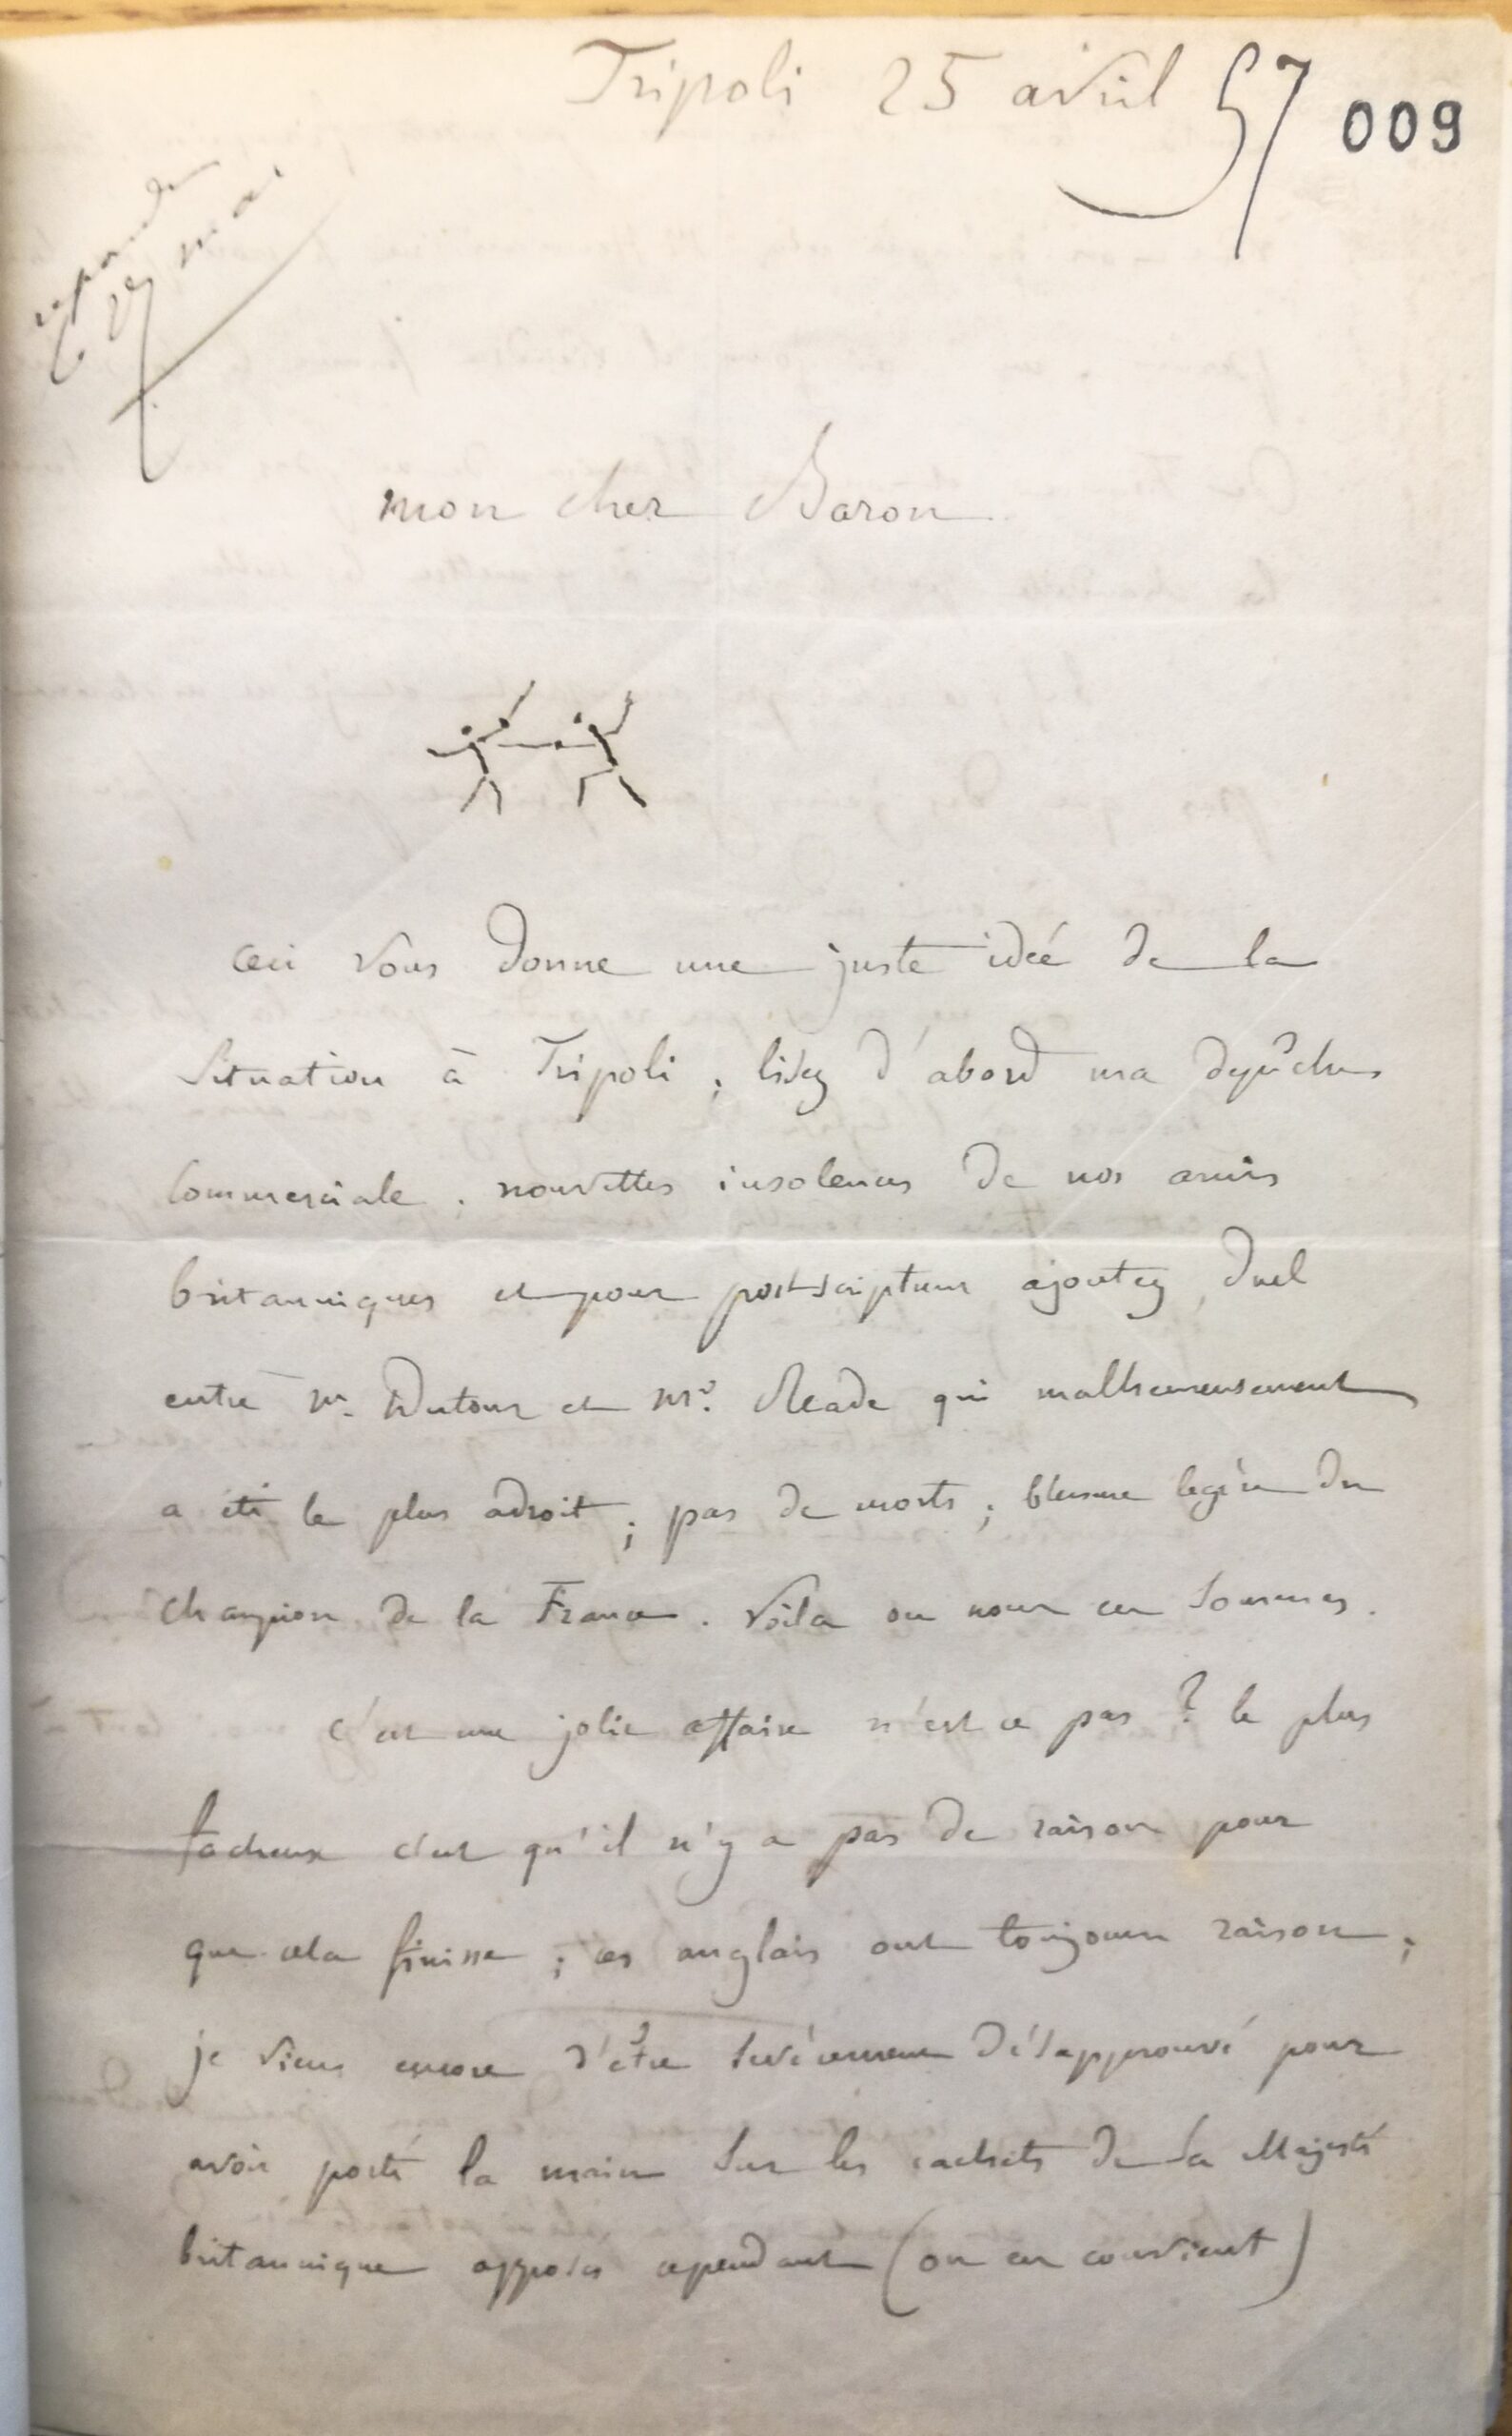 Tripoli 25 avril 57
009
répondu
le 27 mai
mon cher Baron
Ceci vous donne une juste idée de la
Situation à Tripoli ; lisez d'abord ma depêche
Commerciale . nouvelles insolences de nos amis
britanniques et pour post-scriptum ajoutez duel
entre Mr. Dutour et Mr. Reade qui malheureusement
a été le plus adroit ; pas de morts ; blessure legère du
Champion de la France . Voila ou nous en Sommes .
C'est une jolie affaire n'est ce pas ? le plus
facheux c'est qu'il n'y a pas de raison pour
que cela finisse ; ces anglais ont toujours raison ;
je viens encore d'être Sevèrement désapprouvé pour
avoir porté la main Sur les cachets de Sa Majesté
britannique apposés cependant (on en convient)